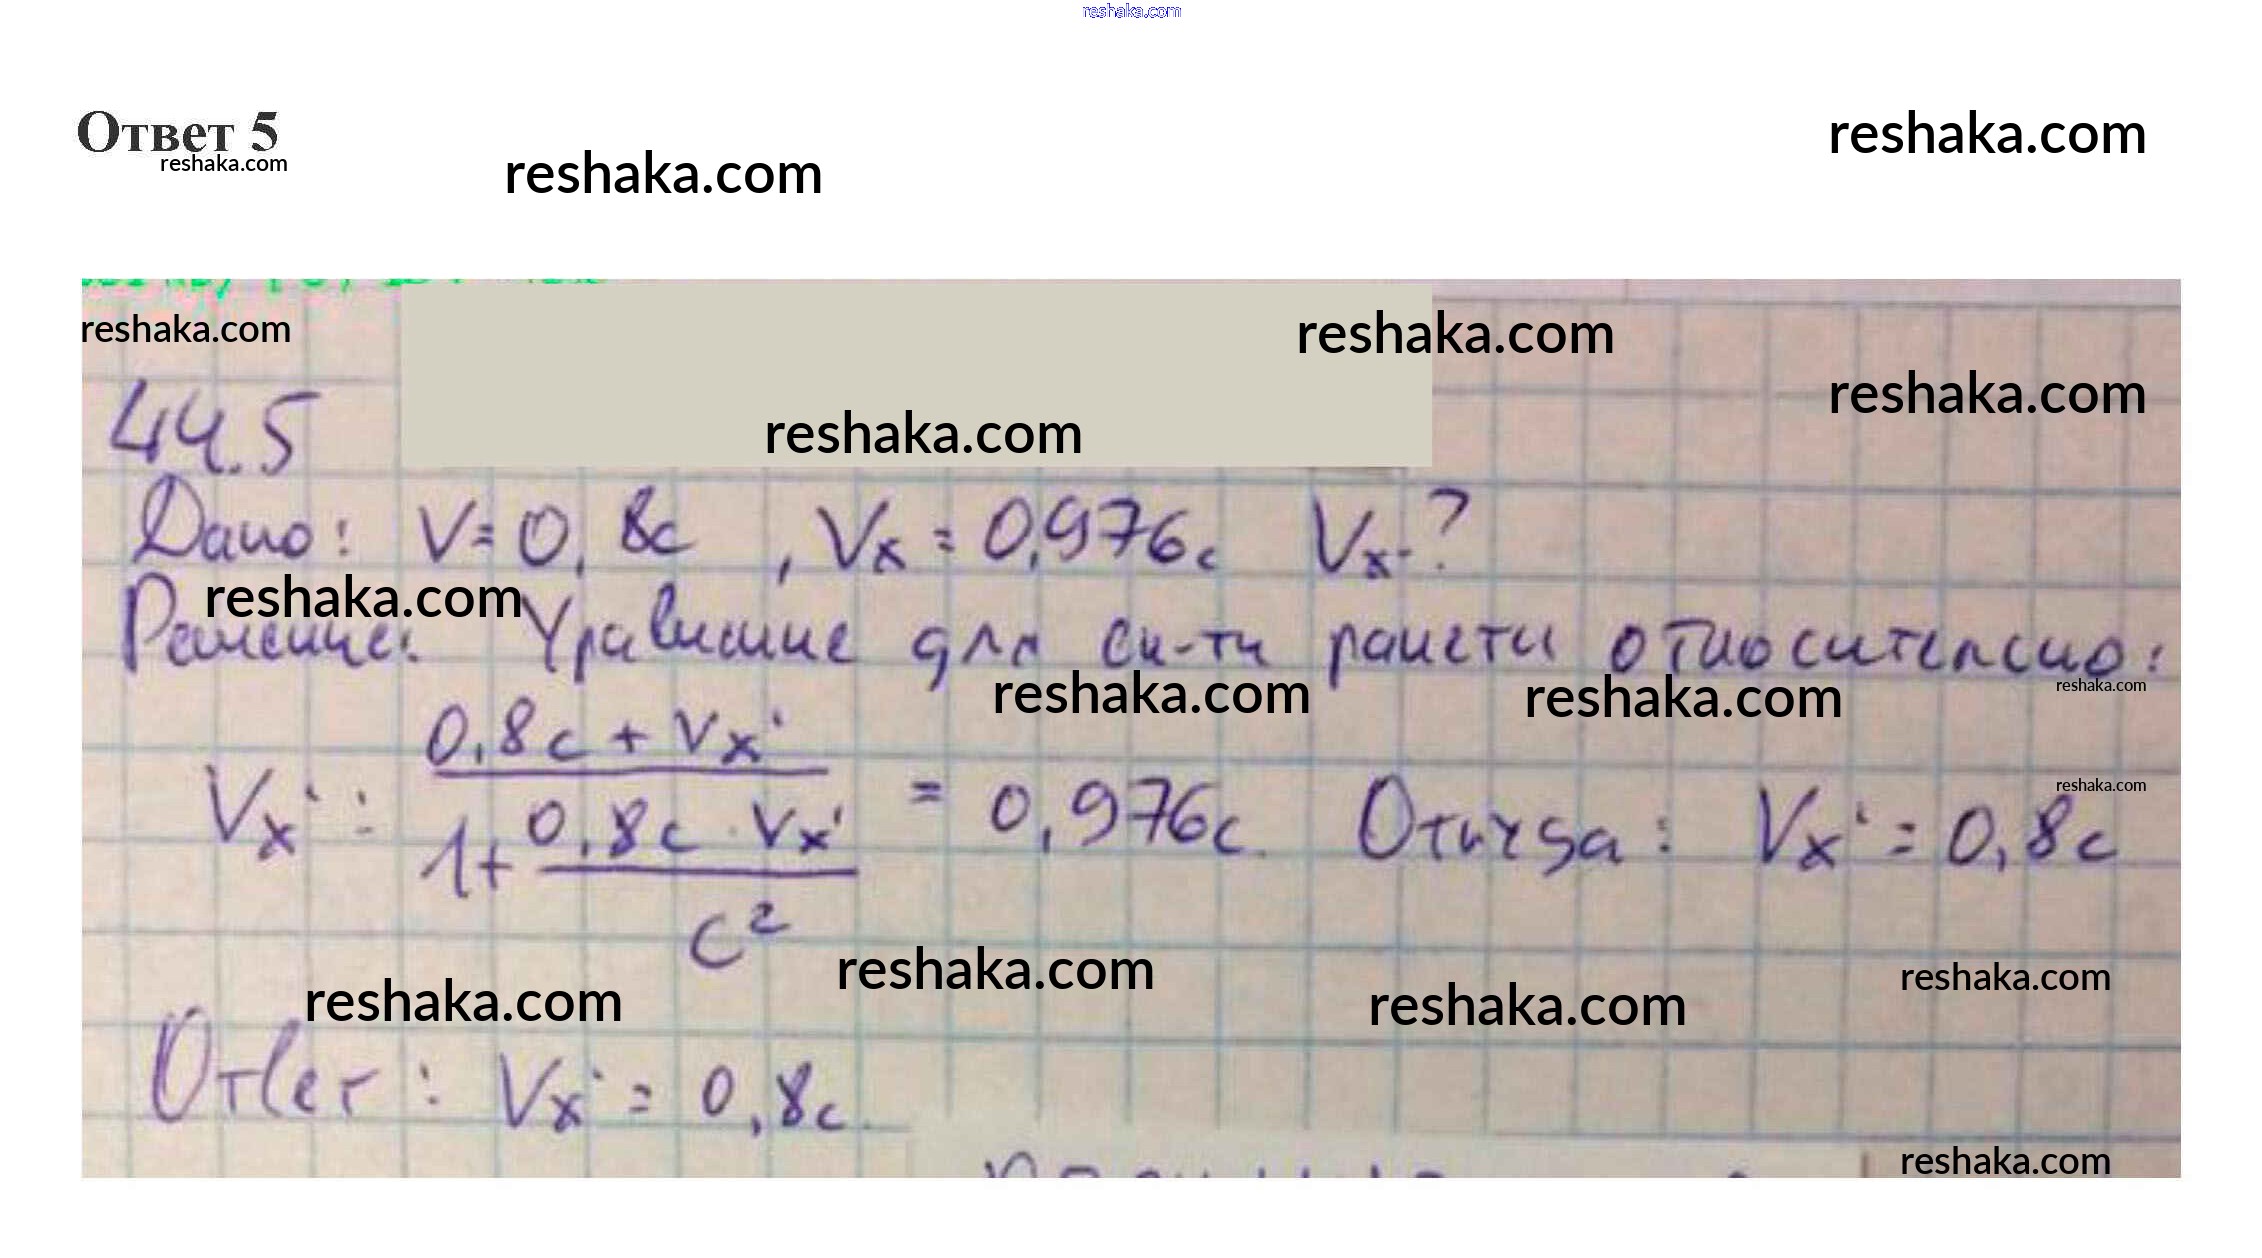 reshaka.com
Ответ 5
reshaka.com
reshaka.com
reshaka.com
reshaka.com
reshaka.com
reshaka.com
reshaka.com
44.5
Дано: V=0,8c , Vx = 0,976c Vx'-?
reshaka.com
Решение: Уравнение для ск-ти ракеты относительно:
reshaka.com
reshaka.com
reshaka.com
0,8c + Vx'
Vx' = = 0,976c. Откуда: Vx' = 0,8c
reshaka.com
1+ 0,8c · Vx'
c²
reshaka.com
reshaka.com
reshaka.com
reshaka.com
Ответ: Vx' = 0,8c.
reshaka.com